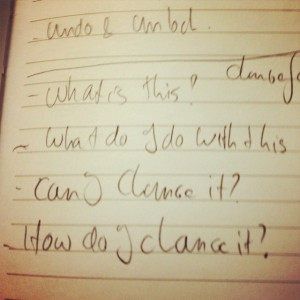 - undo &
- What is this?
- What do I do with this
- Can I change it?
- How do I change it?